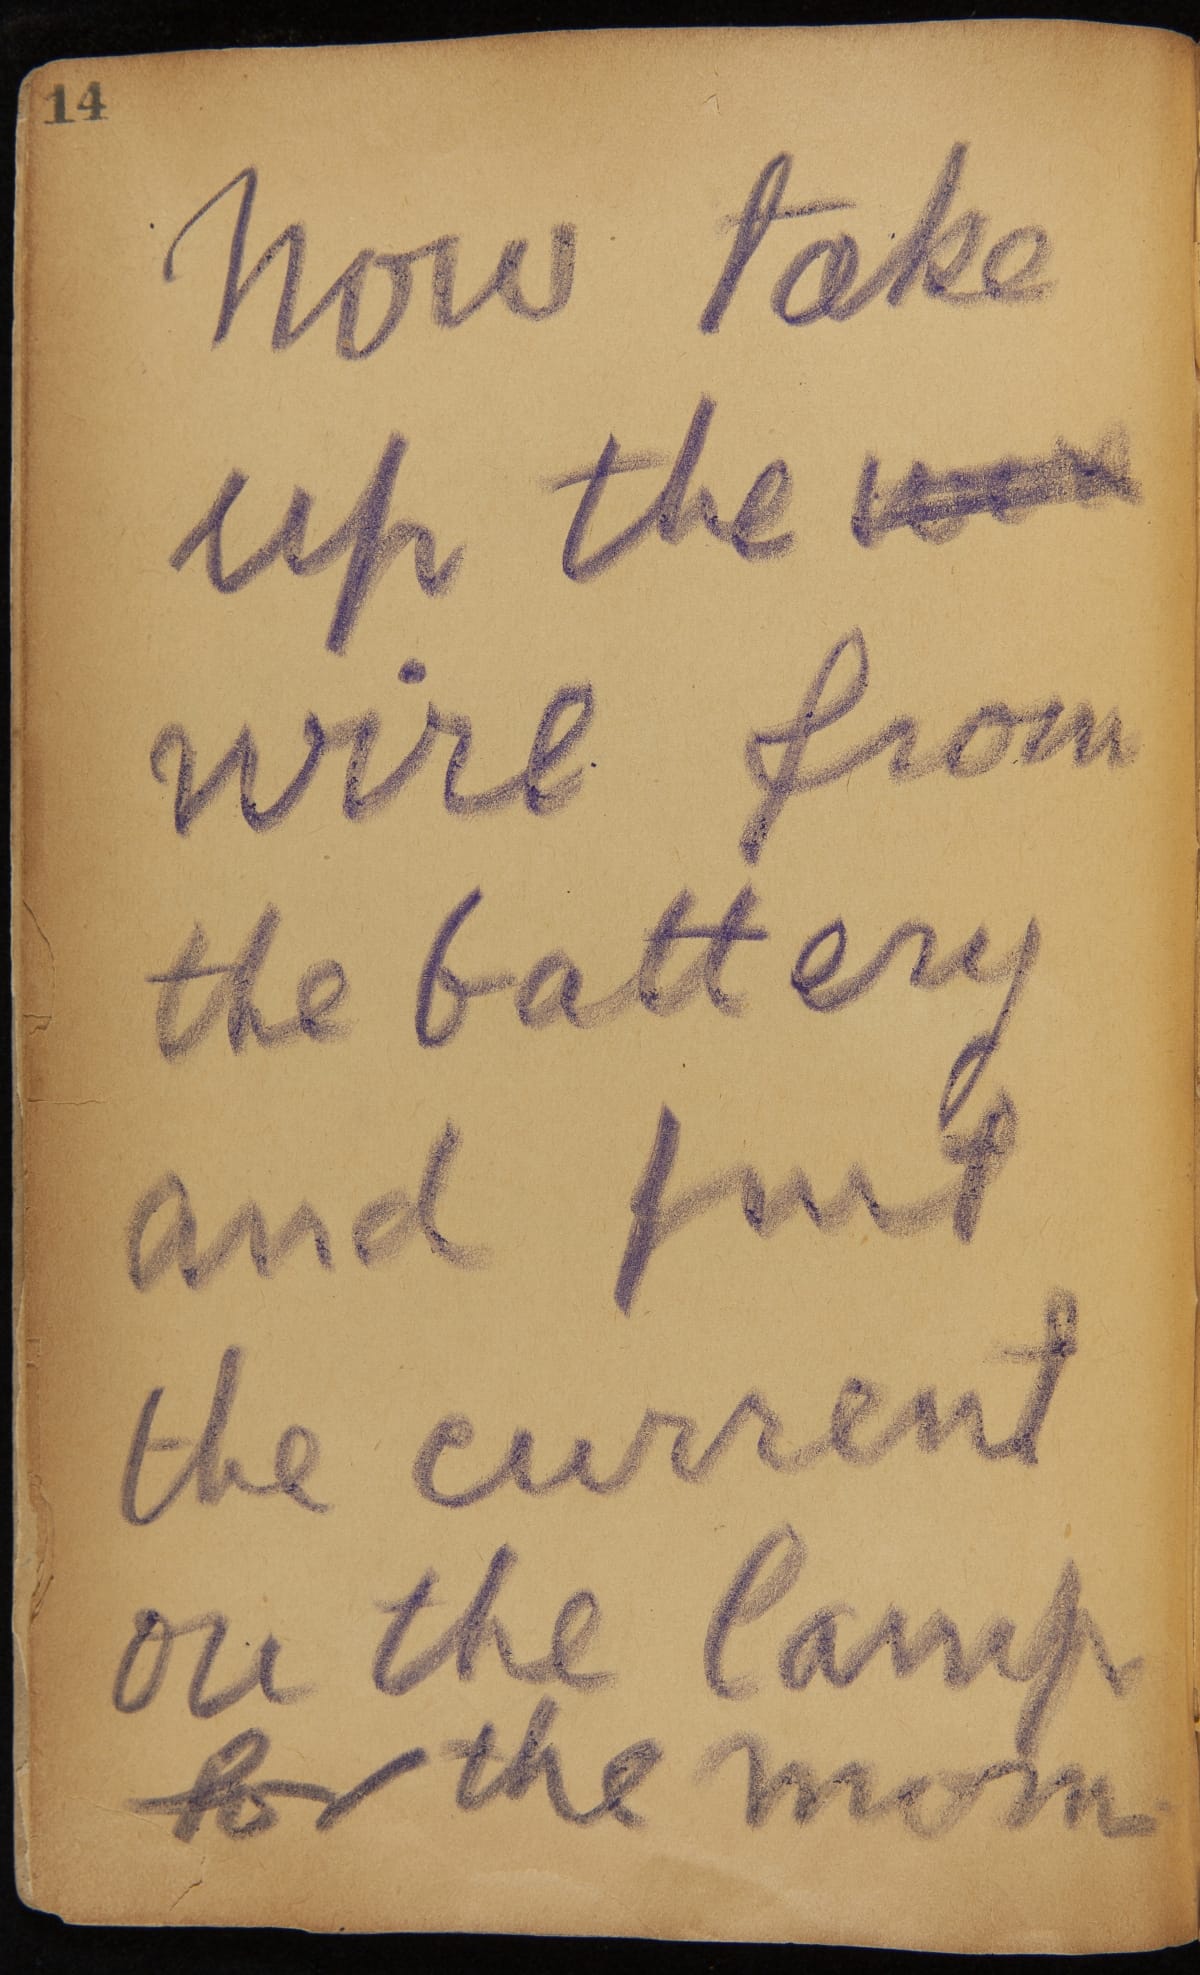 14
Now take
up the
wire from
the battery
and put
the current
on the lamp
for the mom-